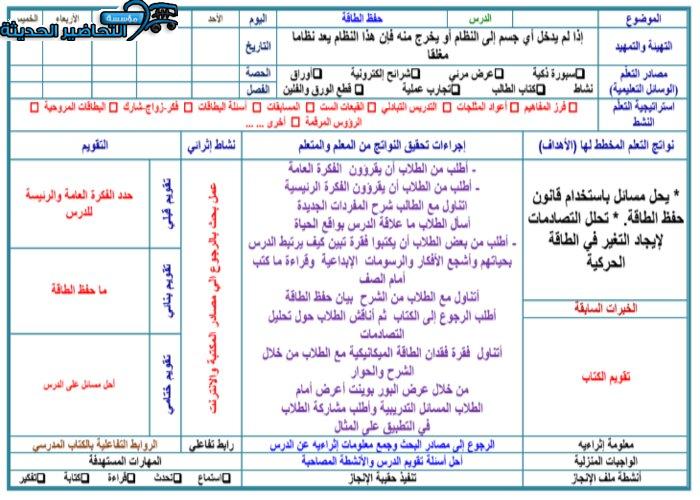 الموضوع
الدرس
حفظ الطاقة
اليوم
الأحد
الأربعاء
الخميس
مؤسسة
التحاضير الحديثة
التهيئة والتمهيد
إذا لم يدخل أي جسم إلى النظام أو يخرج منه فإن هذا النظام يعد نظاما مغلقا
التاريخ
مصادر التعلم
(الوسائل التعليمية)
سبورة ذكية □عرض مرئي □شرائح إلكترونية □أوراق
نشاط □ كتاب الطالب □تجارب عملية □ قطع الورق والفلين
الحصة
الفصل
استراتيجية التعلم
النشط
□ فرز المفاهيم □ أعواد المثلجات □ التدريس التبادلي □ القبعات الست □ المسابقات □ أسئلة البطاقات □ فكر-زواج-شارك □ البطاقات المروحية
□ الرؤوس المرقمة □ أخرى ... ...
نواتج التعلم المخطط لها (الأهداف)
إجراءات تحقيق النواتج من المعلم والمتعلم
نشاط إثرائي
التقويم
* يحل مسائل باستخدام قانون
حفظ الطاقة. * تحلل التصادمات
لإيجاد التغير في الطاقة
الحركية
الخبرات السابقة
تقويم الكتاب
- أطلب من الطلاب أن يقرؤون الفكرة العامة
- أطلب من الطلاب أن يقرؤون الفكرة الرئيسية
أتناول مع الطالب شرح المفردات الجديدة
أسأل الطلاب ما علاقة الدرس بواقع الحياة
- أطلب من بعض الطلاب أن يكتبوا فقرة تبين كيف يرتبط الدرس
بحياتهم وأشجع الأفكار والرسومات الإبداعية وقراءة ما كتب
أمام الصف
أتناول مع الطلاب من الشرح بيان حفظ الطاقة
أطلب الرجوع إلى الكتاب ثم أناقش الطلاب حول تحليل
التصادمات
أتناول فقرة فقدان الطاقة الميكانيكية مع الطلاب من خلال
الشرح والحوار
من خلال عرض البور بوينت أعرض أمام
الطلاب المسائل التدريبية وأطلب مشاركة الطلاب
في التطبيق على المثال
عمل بحث بالرجوع الي مصادر المكتبة والانترنت
تقويم قبلي
حدد الفكرة العامة والرئيسة
للدرس
تقويم بنائي
ما حفظ الطاقة
تقويم ختامي
أحل مسائل على الدرس
معلومة إثراءيه
الرجوع إلى مصادر البحث وجمع معلومات إثراءيه عن الدرس
رابط تفاعلي
الروابط التفاعلية بالكتاب المدرسي
الواجبات المنزلية
أحل أسئلة تقويم الدرس والأنشطة المصاحبة
المهارات المستهدفة
أنشطة ملف الإنجاز
تنفيذ حقيبة الإنجاز
□استماع □تحدث □قراءة □كتابة □تفكير